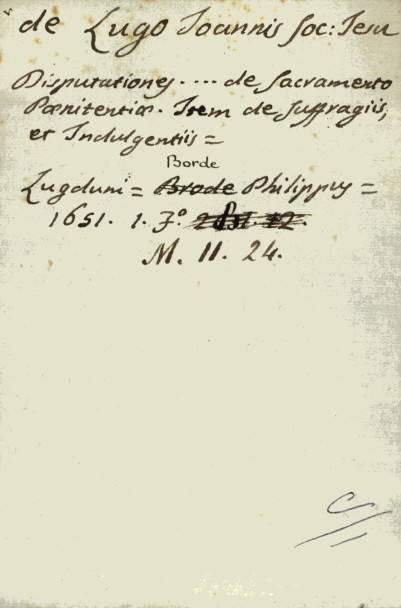 de Lugo Joannis Soc: Jesu
Disputationes .... de Sacramento
Pœnitentiæ. Item de Suffragiis,
et Indulgentiis =
Borde
Lugduni = Brode Philippus =
1651. 1. Fº
M. 11. 24.